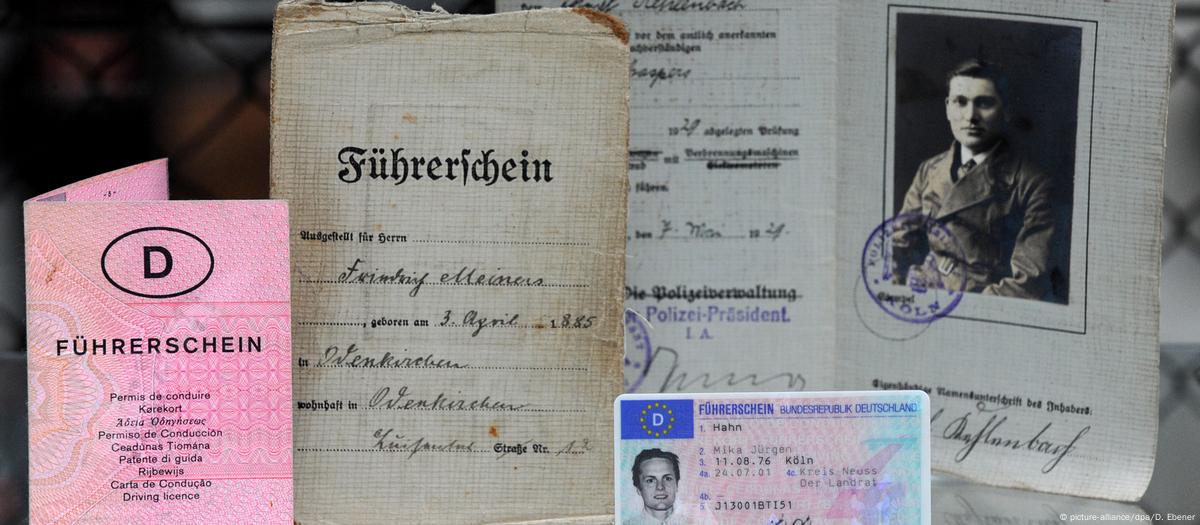 D
FÜHRERSCHEIN
Permis de conduire
Kørekort
Ἄδεια Ὁδηγήσεως
Permiso de Conducción
Ceadúnas Tiomána
Patente di guida
Rijbewijs
Carta de Condução
Driving licence
Führerschein
Ausgestellt für Herrn
Friedrich Meiners
, geboren am 3. April 1885
in Odenkirchen
wohnhaft in Odenkirchen
Straße Nr.
vor dem amtlich anerkannten
1929 abgelegten Prüfung
mit Verbrennungsmaschinen
führen.
den 7. Mai 1929.
Die Polizeiverwaltung
Polizei-Präsident.
I. A.
KÖLN
Eigenhändige Namensunterschrift des Inhabers:
Kehlenbach
D
FÜHRERSCHEIN BUNDESREPUBLIK DEUTSCHLAND
1. Hahn
2. Mika Jürgen
3. 11.08.76 Köln
4a. 24.07.01 4c. Kreis Neuss
Der Landrat
4b. —
5. J13001BTI51
© picture-alliance/dpa/D. Ebener